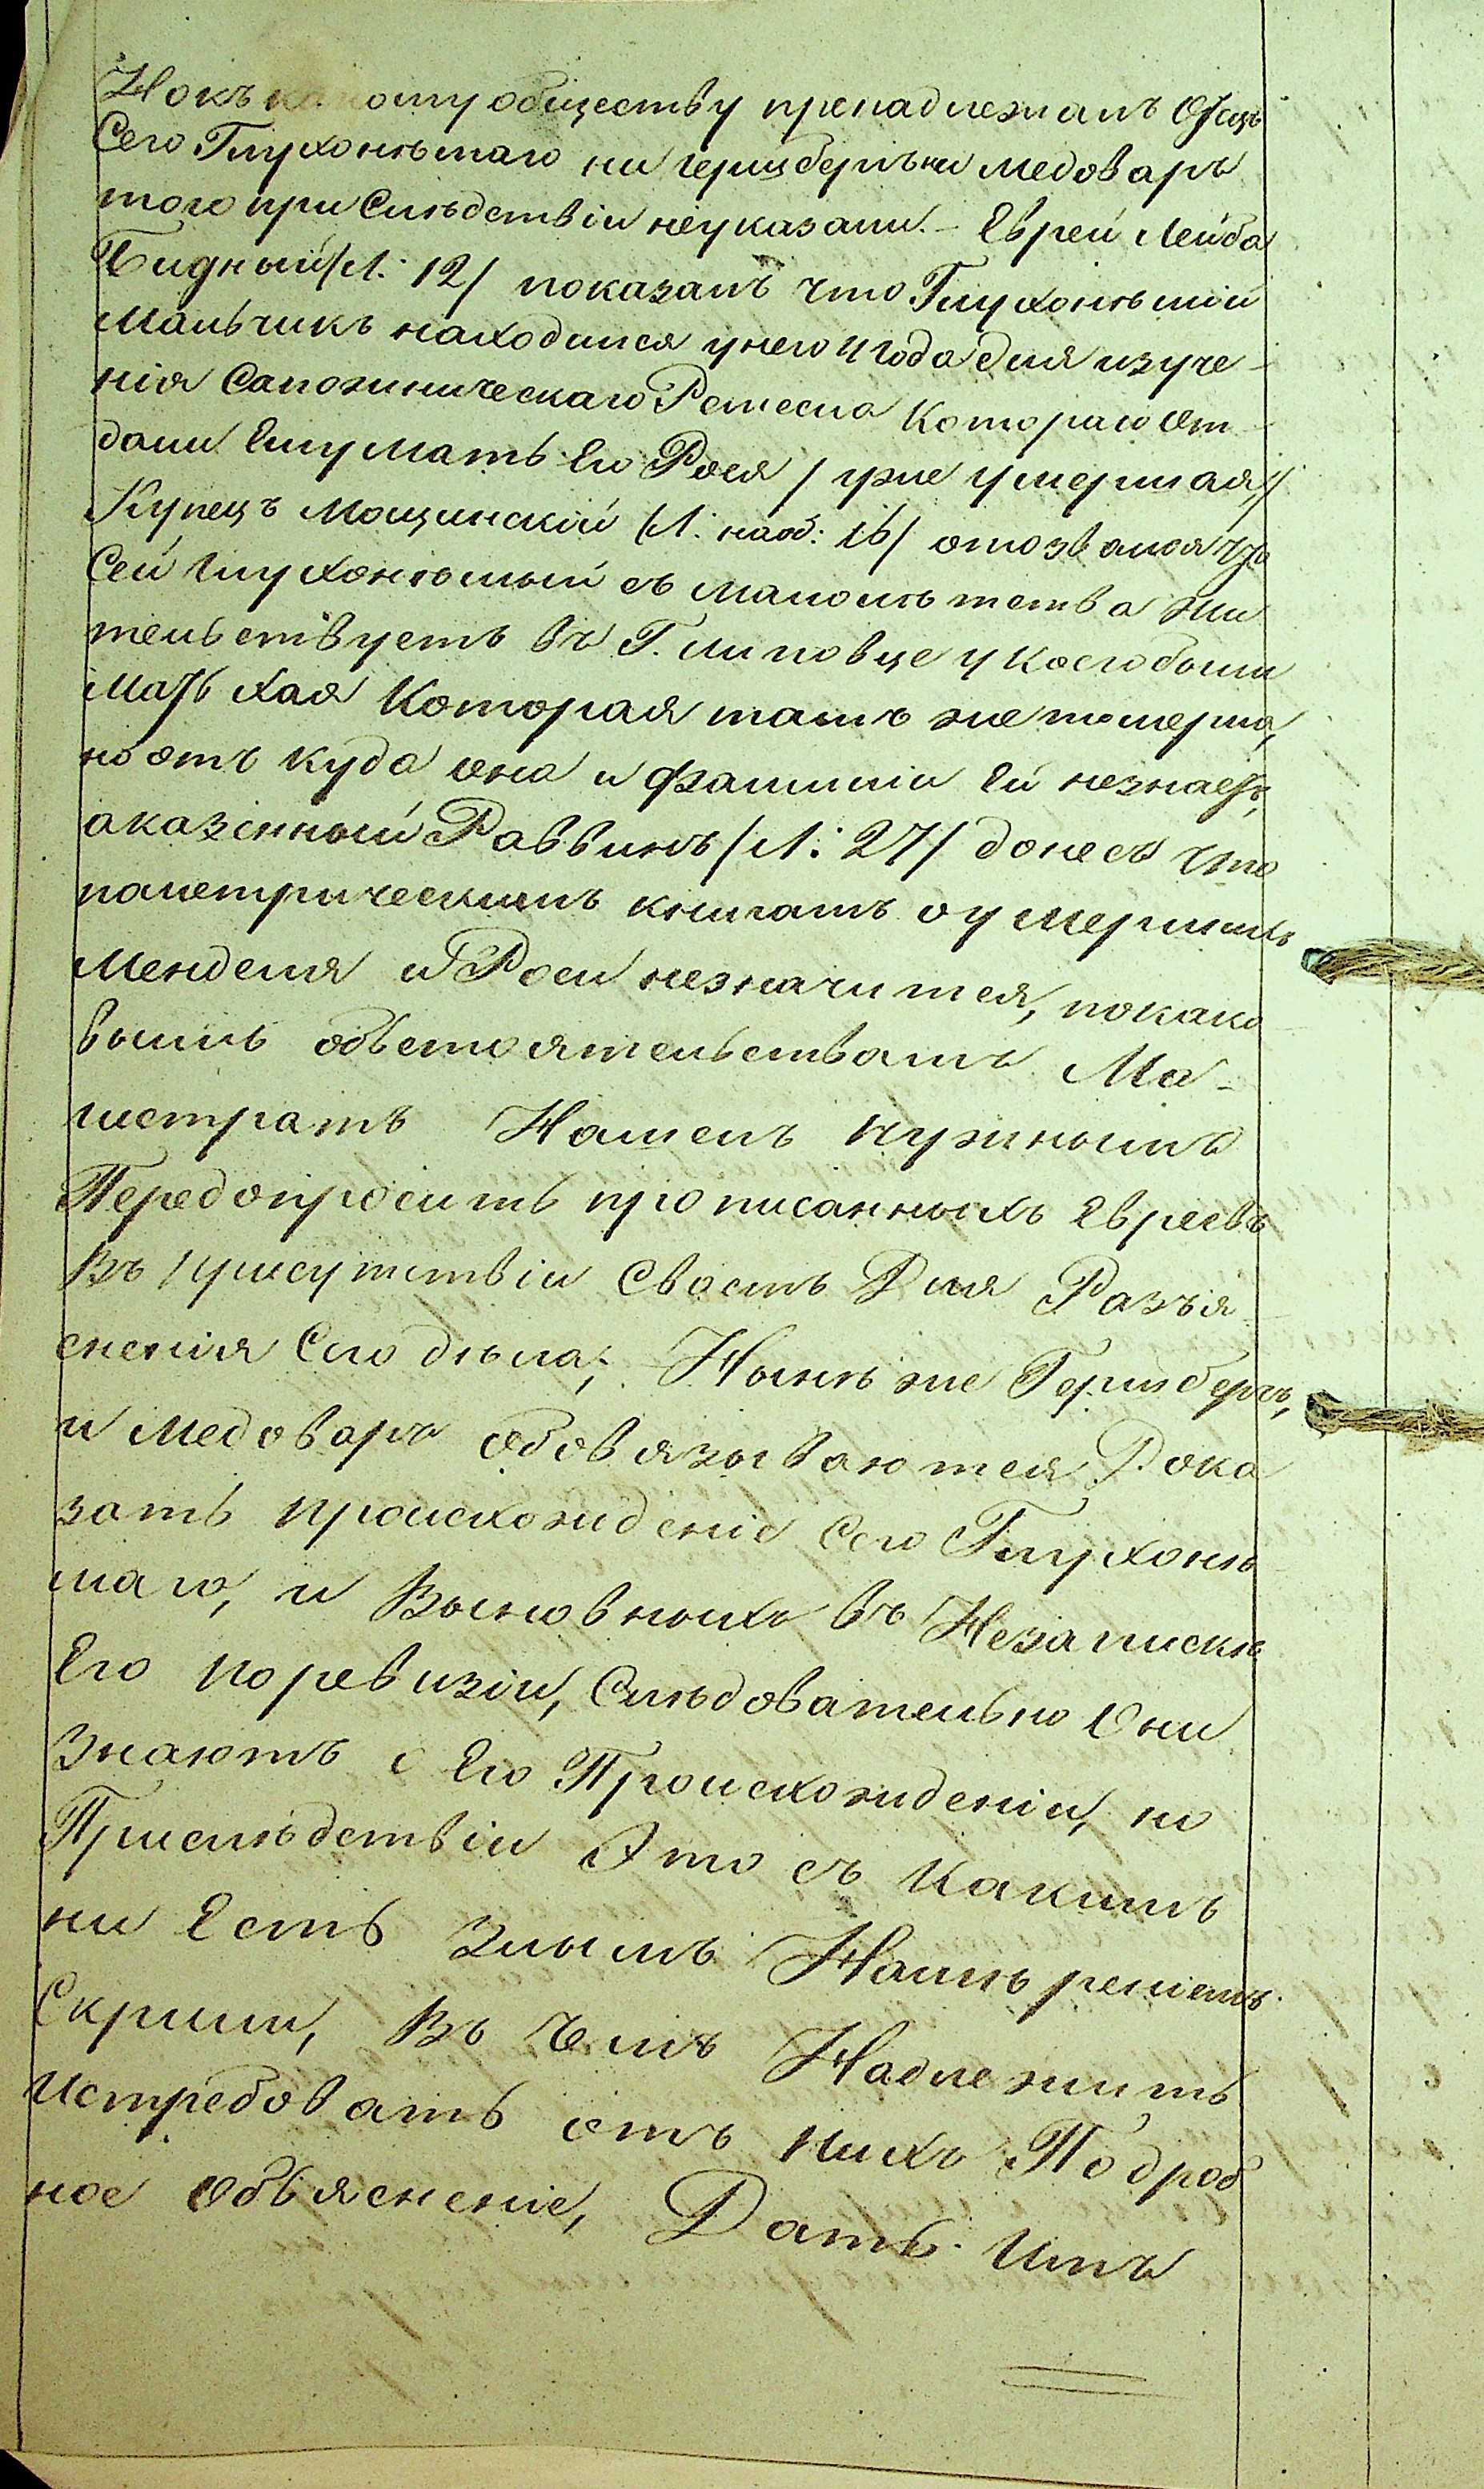 Но къ какому обществу пренадлежалъ Отецъ
Сего Глухонѣмаго ни гершбергъ ни медоваръ
того при Слѣдствіи неуказали. - Еврей Лейба
Бидный /Л: 12/ показалъ что Глухонѣмій
Мальчикъ находился у него 4 года для изуче-
нія Сапожническаго Ремесла Котораго от-
дали Ему Мать Его Рося / уже умершая,/
Купецъ Мощинскій /Л: наоб: 16/ отозвался что
Сей Глухонѣмый съ малолѣтства жи
тельствуетъ въ Г. Липовце у Коего была
Мать Хая Которая тамъ же померла,
но отъ куда она и фамиліи Ей незнаетъ,
а казенный Раввинъ /Л: 27/ донесъ что
пометрическимъ книгамъ оумершихъ
Менделя и Роси незначится, по како
вымъ обстоятельствамъ Ма-
гистратъ Нашелъ нужнымъ
Передопросить прописанныхъ Евреевъ
Въ присутствіи Своемъ Для Разъя-
сненія Сего дѣла; Нынѣ же Гершбергъ,
и Медоваръ обовязываются Дока
зать происхожденіе Сего Глухонѣ
маго, и Выновныхъ въ Незапискѣ
Его поревизіи, Слѣдовательно Они
Знаютъ о Его Происхожденіи, но
Прислѣдствіи Это съ Какимъ
ни Есть Злымъ Намѣреніемъ
Скрили, Въ Чемъ Надлежитъ
Истребовать отъ нихъ Подроб
ное объясненіе, Дать Имъ